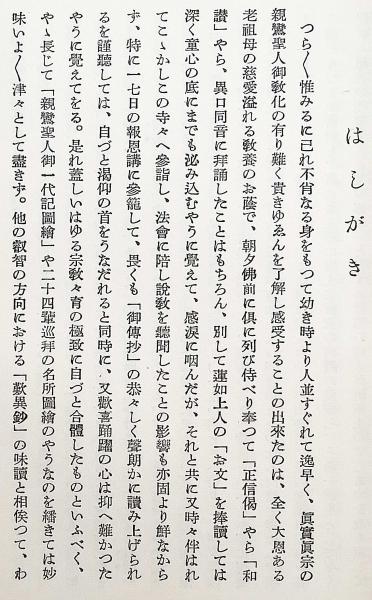 はしがき
つら〳〵惟みるに已れ不肖なる身をもつて幼き時より人並すぐれて逸早く、眞實眞宗の
親鸞聖人御教化の有り難く貴きゆゑんを了解し感受することの出來たのは、全く大恩ある
老祖母の慈愛溢れる教養のお蔭で、朝夕佛前に倶に列び侍べり奉つて「正信偈」やら「和
讃」やら、異口同音に拜誦したことはもちろん、別して蓮如上人の「お文」を捧讀しては
深く童心の底にまでも泌み込むやうに覺えて、感涙に咽んだが、それと共に又時々伴はれ
てこゝかしこの寺々へ參詣し、法會に陪し說教を聽聞したことの影響も亦固より鮮なから
ず、特に一七日の報恩講に參籠して、畏くも「御傳抄」の恭々しく聲朗かに讀み上げられ
るを謹聽しては、自づと渴仰の首をうなだれると同時に、又歡喜踊躍の心は抑へ難かつた
やうに覺えてをる。是れ蓋しいはゆる宗教々育の極致に自づと合體したものといふべく、
やゝ長じて「親鸞聖人御一代記圖繪」や二十四輩巡拜の名所圖繪のやうなのを繙きては妙
味いよ〳〵津々として盡きず。他の叡智の方向における「歎異鈔」の味讀と相俟つて、わ